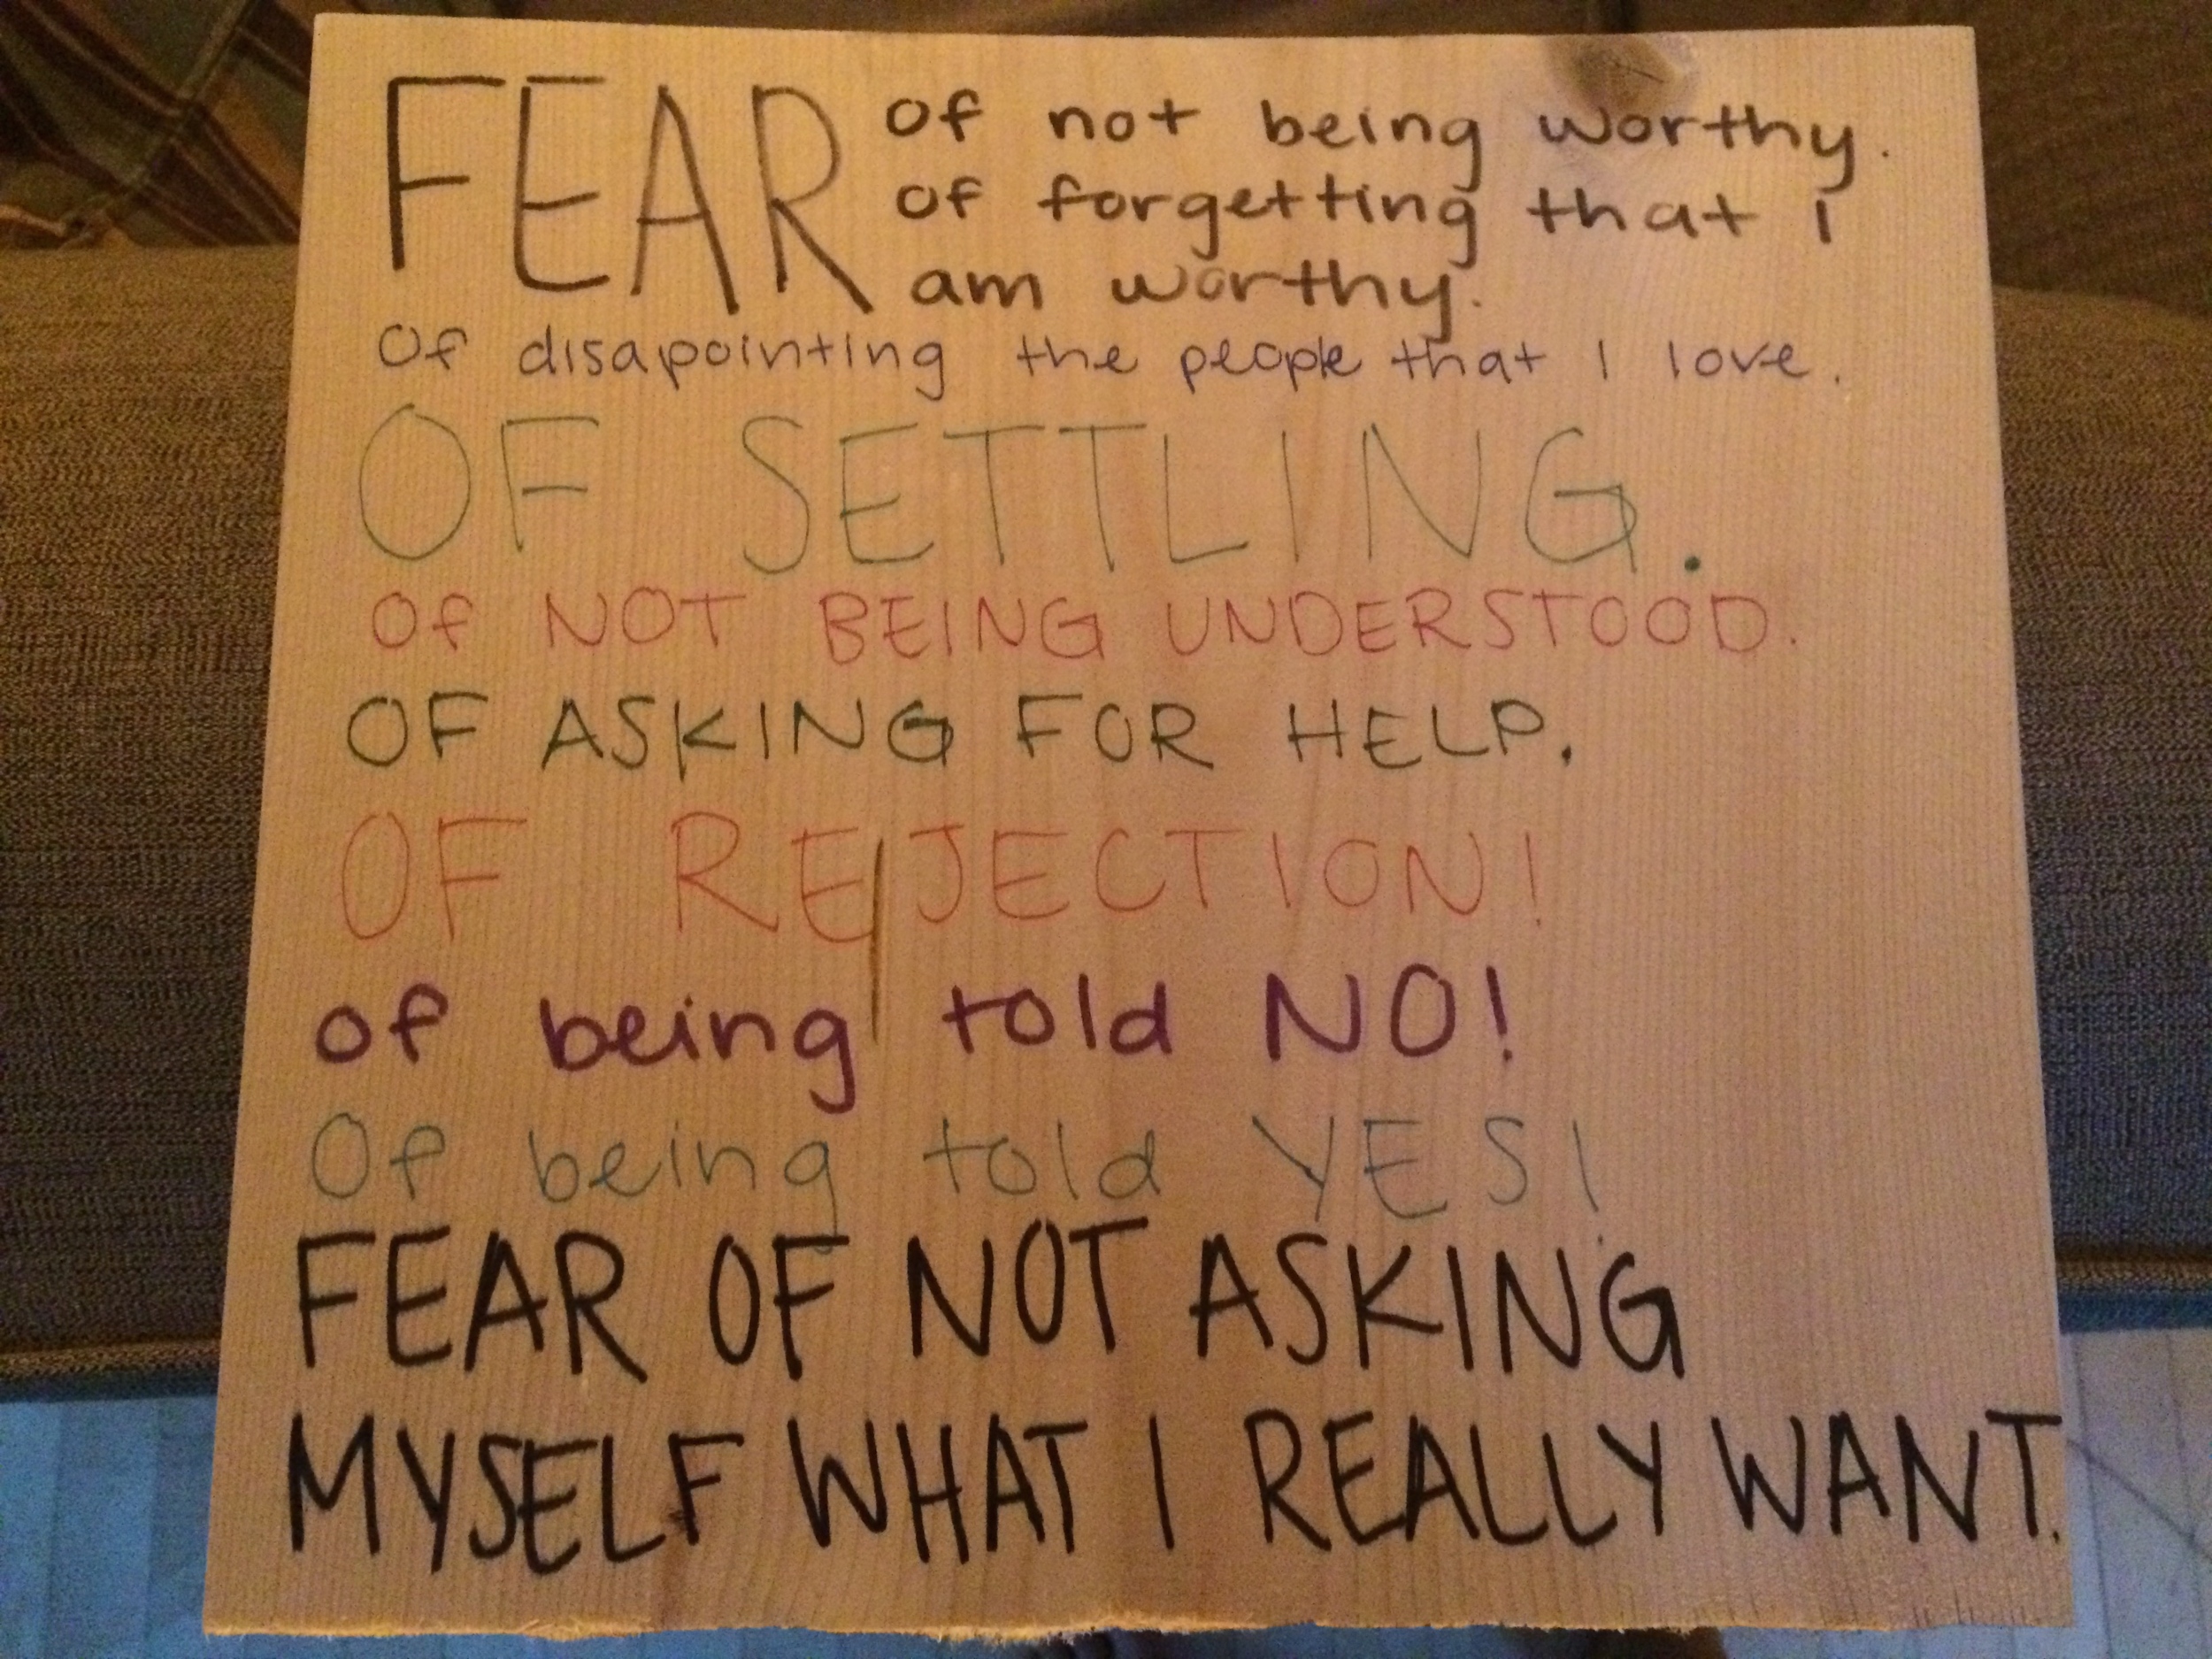 FEAR of not being worthy.
of forgetting that I
am worthy.
Of disapointing the people that I love.
OF SETTLING.
Of NOT BEING UNDERSTOOD.
OF ASKING FOR HELP.
OF REJECTION!
of being told NO!
Of being told YES!
FEAR OF NOT ASKING
MYSELF WHAT I REALLY WANT.